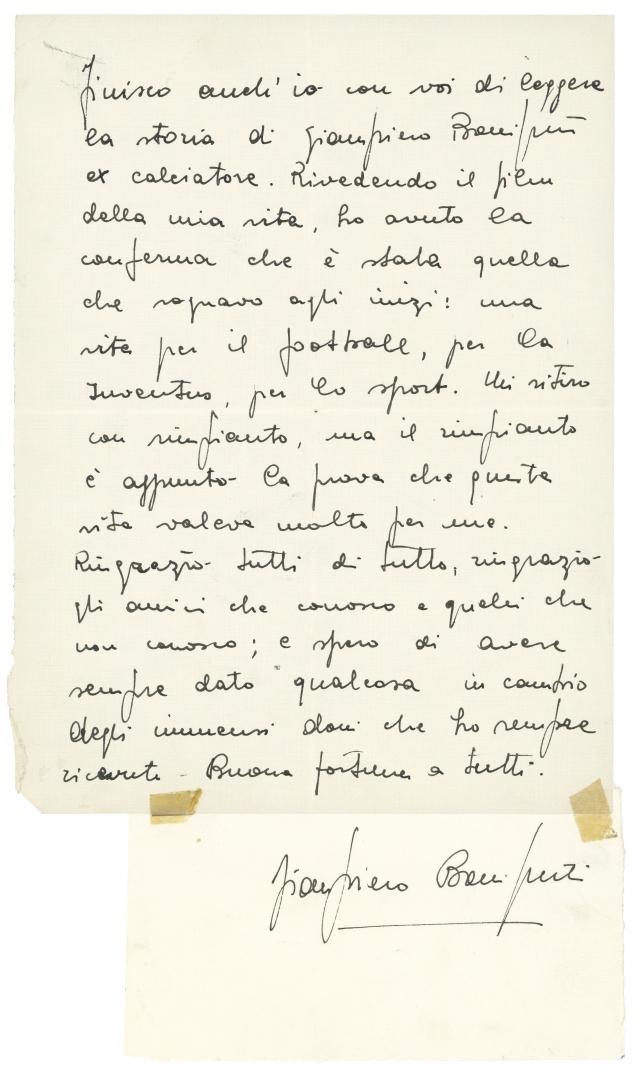 Finisco anch'io con voi di leggere
la storia di Giampiero Boniperti
ex calciatore. Rivedendo il film
della mia vita, ho avuto la
conferma che è stata quella
che sognavo agli inizi: una
vita per il football, per la
Juventus, per lo sport. Mi ritiro
con rimpianto, ma il rimpianto
è appunto la prova che questa
vita valeva molto per me.
Ringrazio tutti di tutto, ringrazio
gli amici che conosco e quelli che
non conosco; e spero di avere
sempre dato qualcosa in cambio
degli immensi doni che ho sempre
ricevuti - Buona fortuna a tutti.
Giampiero Boniperti